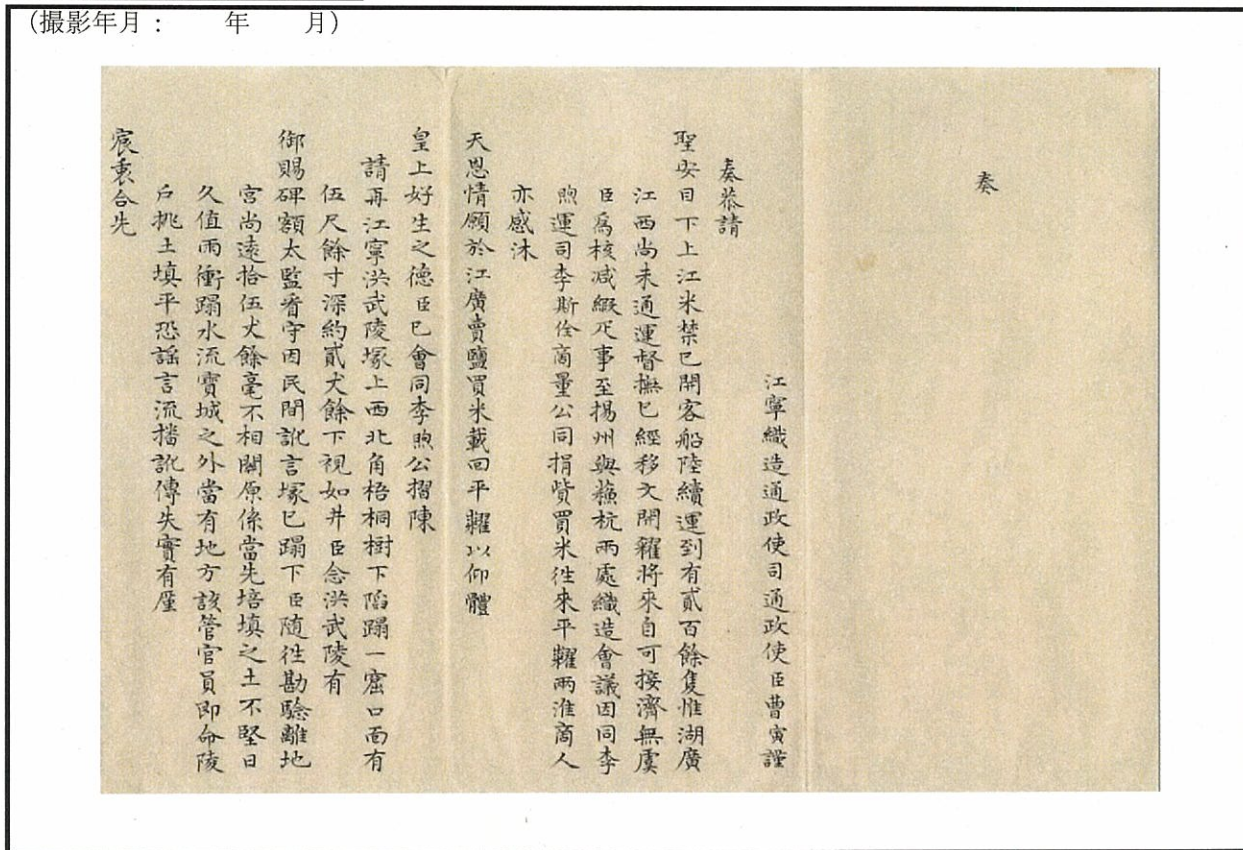 (撮影年月:　　年　　月)
奏
江寧織造通政使司通政使臣曹寅謹
奏恭請
聖安目下上江米禁已開客船陸續運到有貳百餘隻惟湖廣
江西尚未通運督撫已經移文開糴將來自可接濟無虞
臣爲核減緞疋事至揚州與蘓杭兩處織造會議因同李
煦運司李斯佺商量公同捐貲買米徃來平糶兩淮商人
亦感沐
天恩情願於江廣賣鹽買米載回平糶以仰體
皇上好生之德臣已會同李煦公摺陳
請再江寧洪武陵塚上西北角梧桐樹下陷蹋一窟口面有
伍尺餘寸深約貳丈餘下視如井臣念洪武陵有
御賜碑額太監看守因民間訛言塚已蹋下臣随徃勘驗離地
宮尚遠拾伍丈餘毫不相關原係當先培填之土不堅日
久值雨衝蹋水流寳城之外當有地方該管官員即命陵
户挑土填平恐謡言流播訛傳失實有廑
宸衷合先